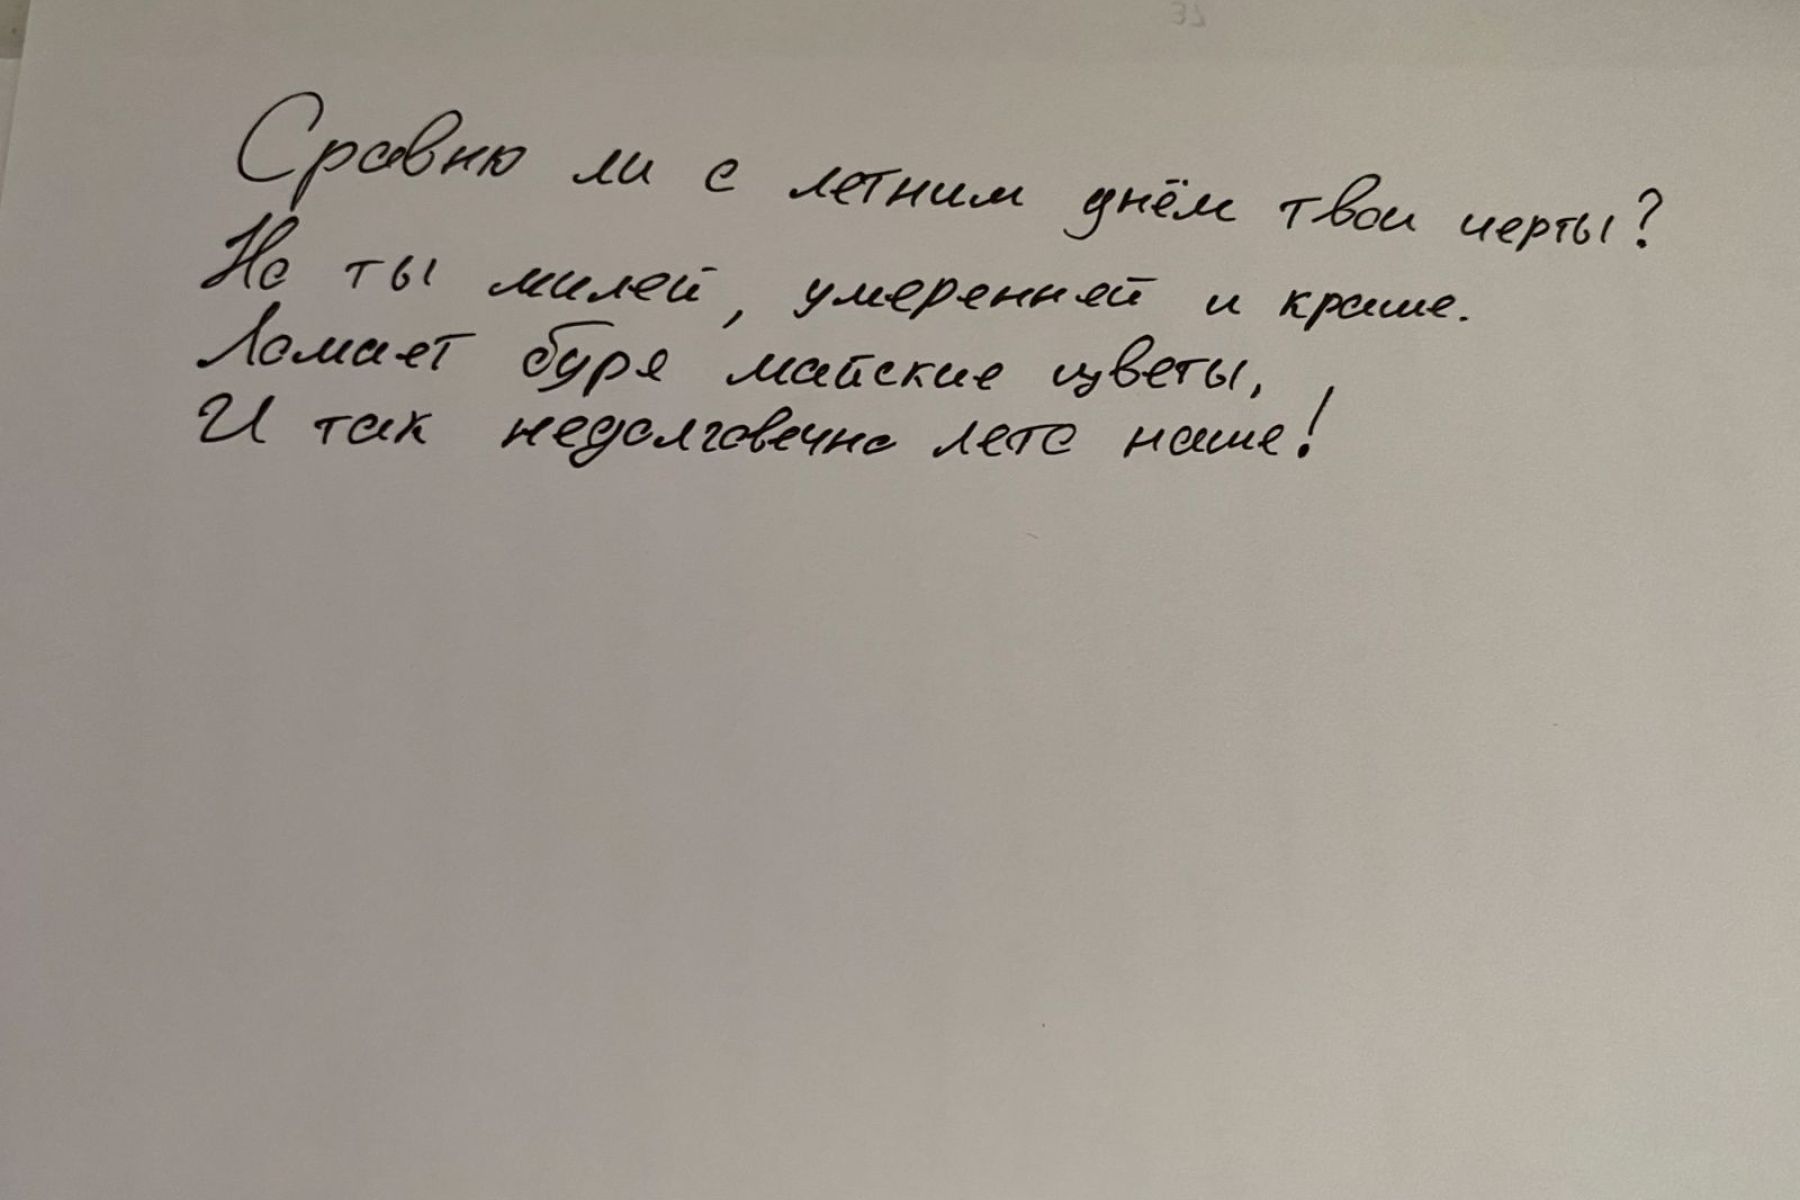 Сравню ли с летним днём твои черты?
Но ты милей, умеренней и краше.
Ломает буря майские цветы,
И так недолговечно лето наше!